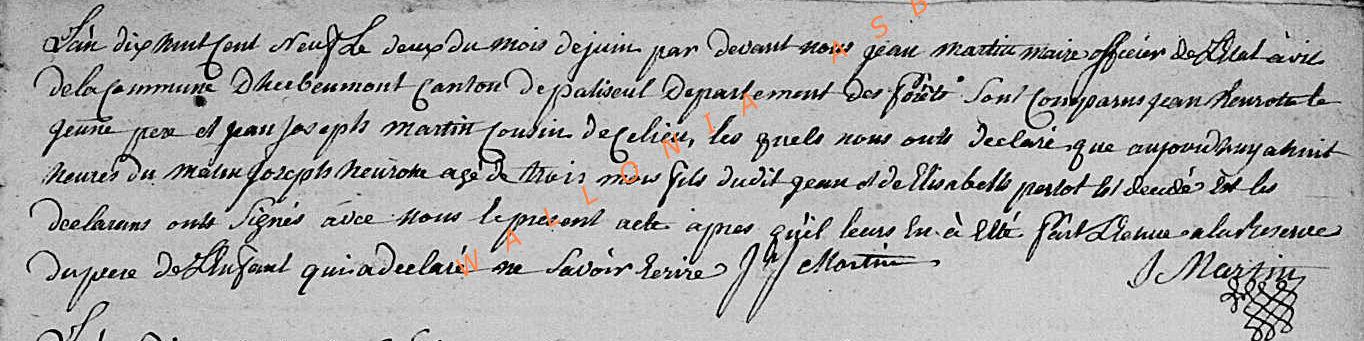 L'an dix huit Cent Neuf Le deux du mois de juin par devant nous jean martin maire officier de L'Etat àvil
de la Commune Dherbeumont Canton De paliseul Departement des forêts Sont Comparus jean heurotte le
jeune pere et jean joseph martin Cousin de Celieu, les quels nous onts declaré que aujourdhuy a huit
heures du matin joseph heurotte agé de trois mois fils dudit jean et de Elisabeth perlot Est decedé Est les
declarans onts Signés avec nous le present acte apres qu'il leurs En à Etté fait L'ecture a la Reserve
du pere de L'Enfant qui a declaré ne Savoir Ecrire J J Martin J Martin
WALLONIA ASB